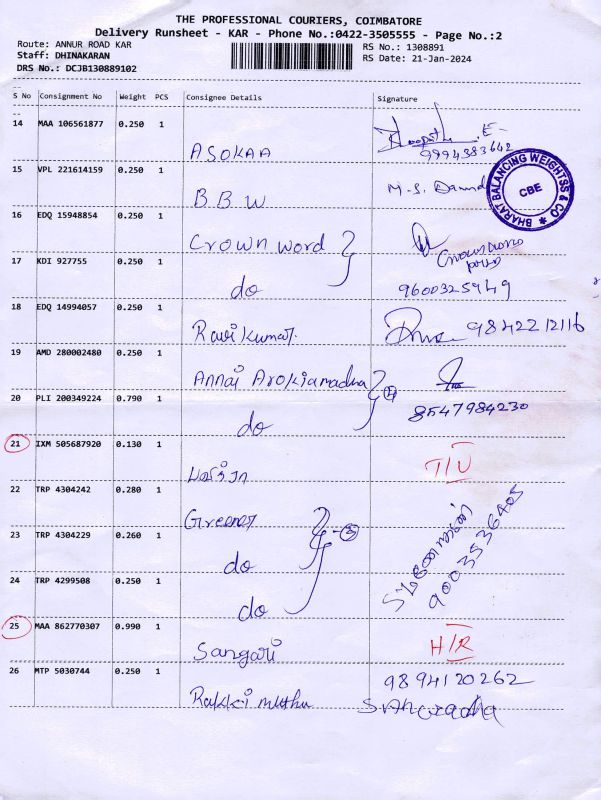 THE PROFESSIONAL COURIERS, COIMBATORE
Delivery Runsheet - KAR - Phone No.:0422-3505555 - Page No.:2
Route: ANNUR ROAD KAR
RS No.: 1308891
Staff: DHINAKARAN
RS Date: 21-Jan-2024
DRS No.: DCJB130889102
S No Consignment No Weight PCS Consignee Details Signature
14 MAA 106561877 0.250 1
ASOKAA
9994383642
15 VPL 221614159 0.250 1
B B W
M.S.
BHARAT BALANCING WEIGHTSS & CO
CBE
16 EDQ 15948854 0.250 1
Crown word
17 KDI 927755 0.250 1
do
9600325949
18 EDQ 14994057 0.250 1
Ravi kumar.
9842212116
19 AMD 280002480 0.250 1
Annai Arokiamadha
20 PLI 200349224 0.790 1
do
8547984230
21 IXM 505687920 0.130 1
T/U
22 TRP 4304242 0.280 1
Greener
23 TRP 4304229 0.260 1
do
3
9003536405
24 TRP 4299508 0.250 1
do
25 MAA 862770307 0.990 1
Sangari
H/R
26 MTP 5030744 0.250 1
Rakki muthu
9894120262